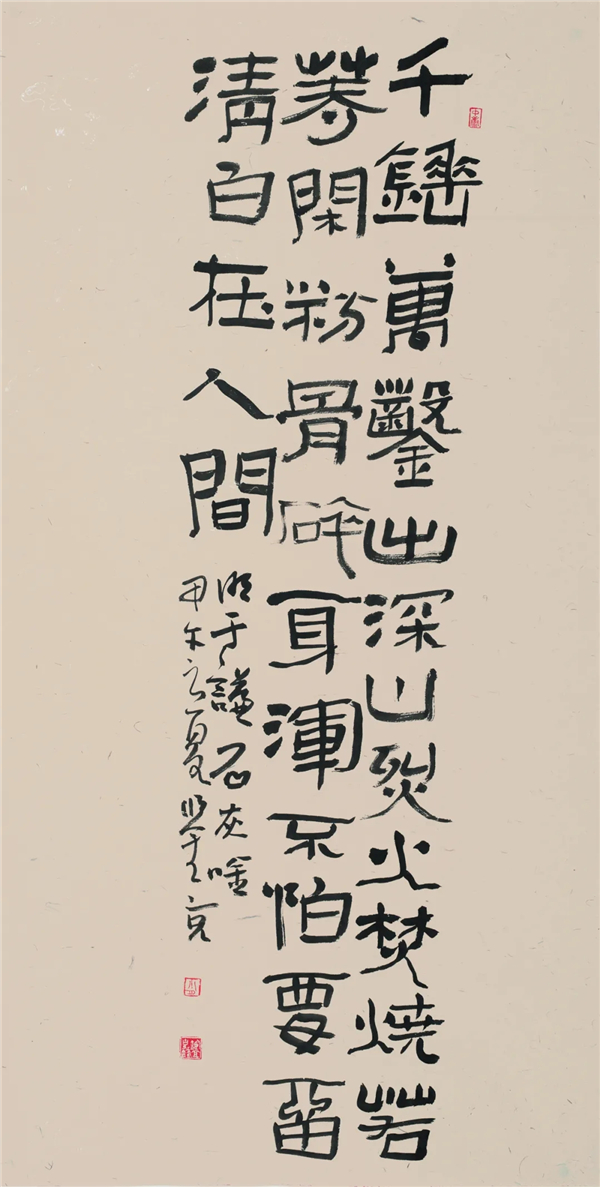 千錘萬鑿出深山烈火焚燒若
等閑粉骨碎身渾不怕要留
清白在人間
明于謙石灰吟
甲午之夏